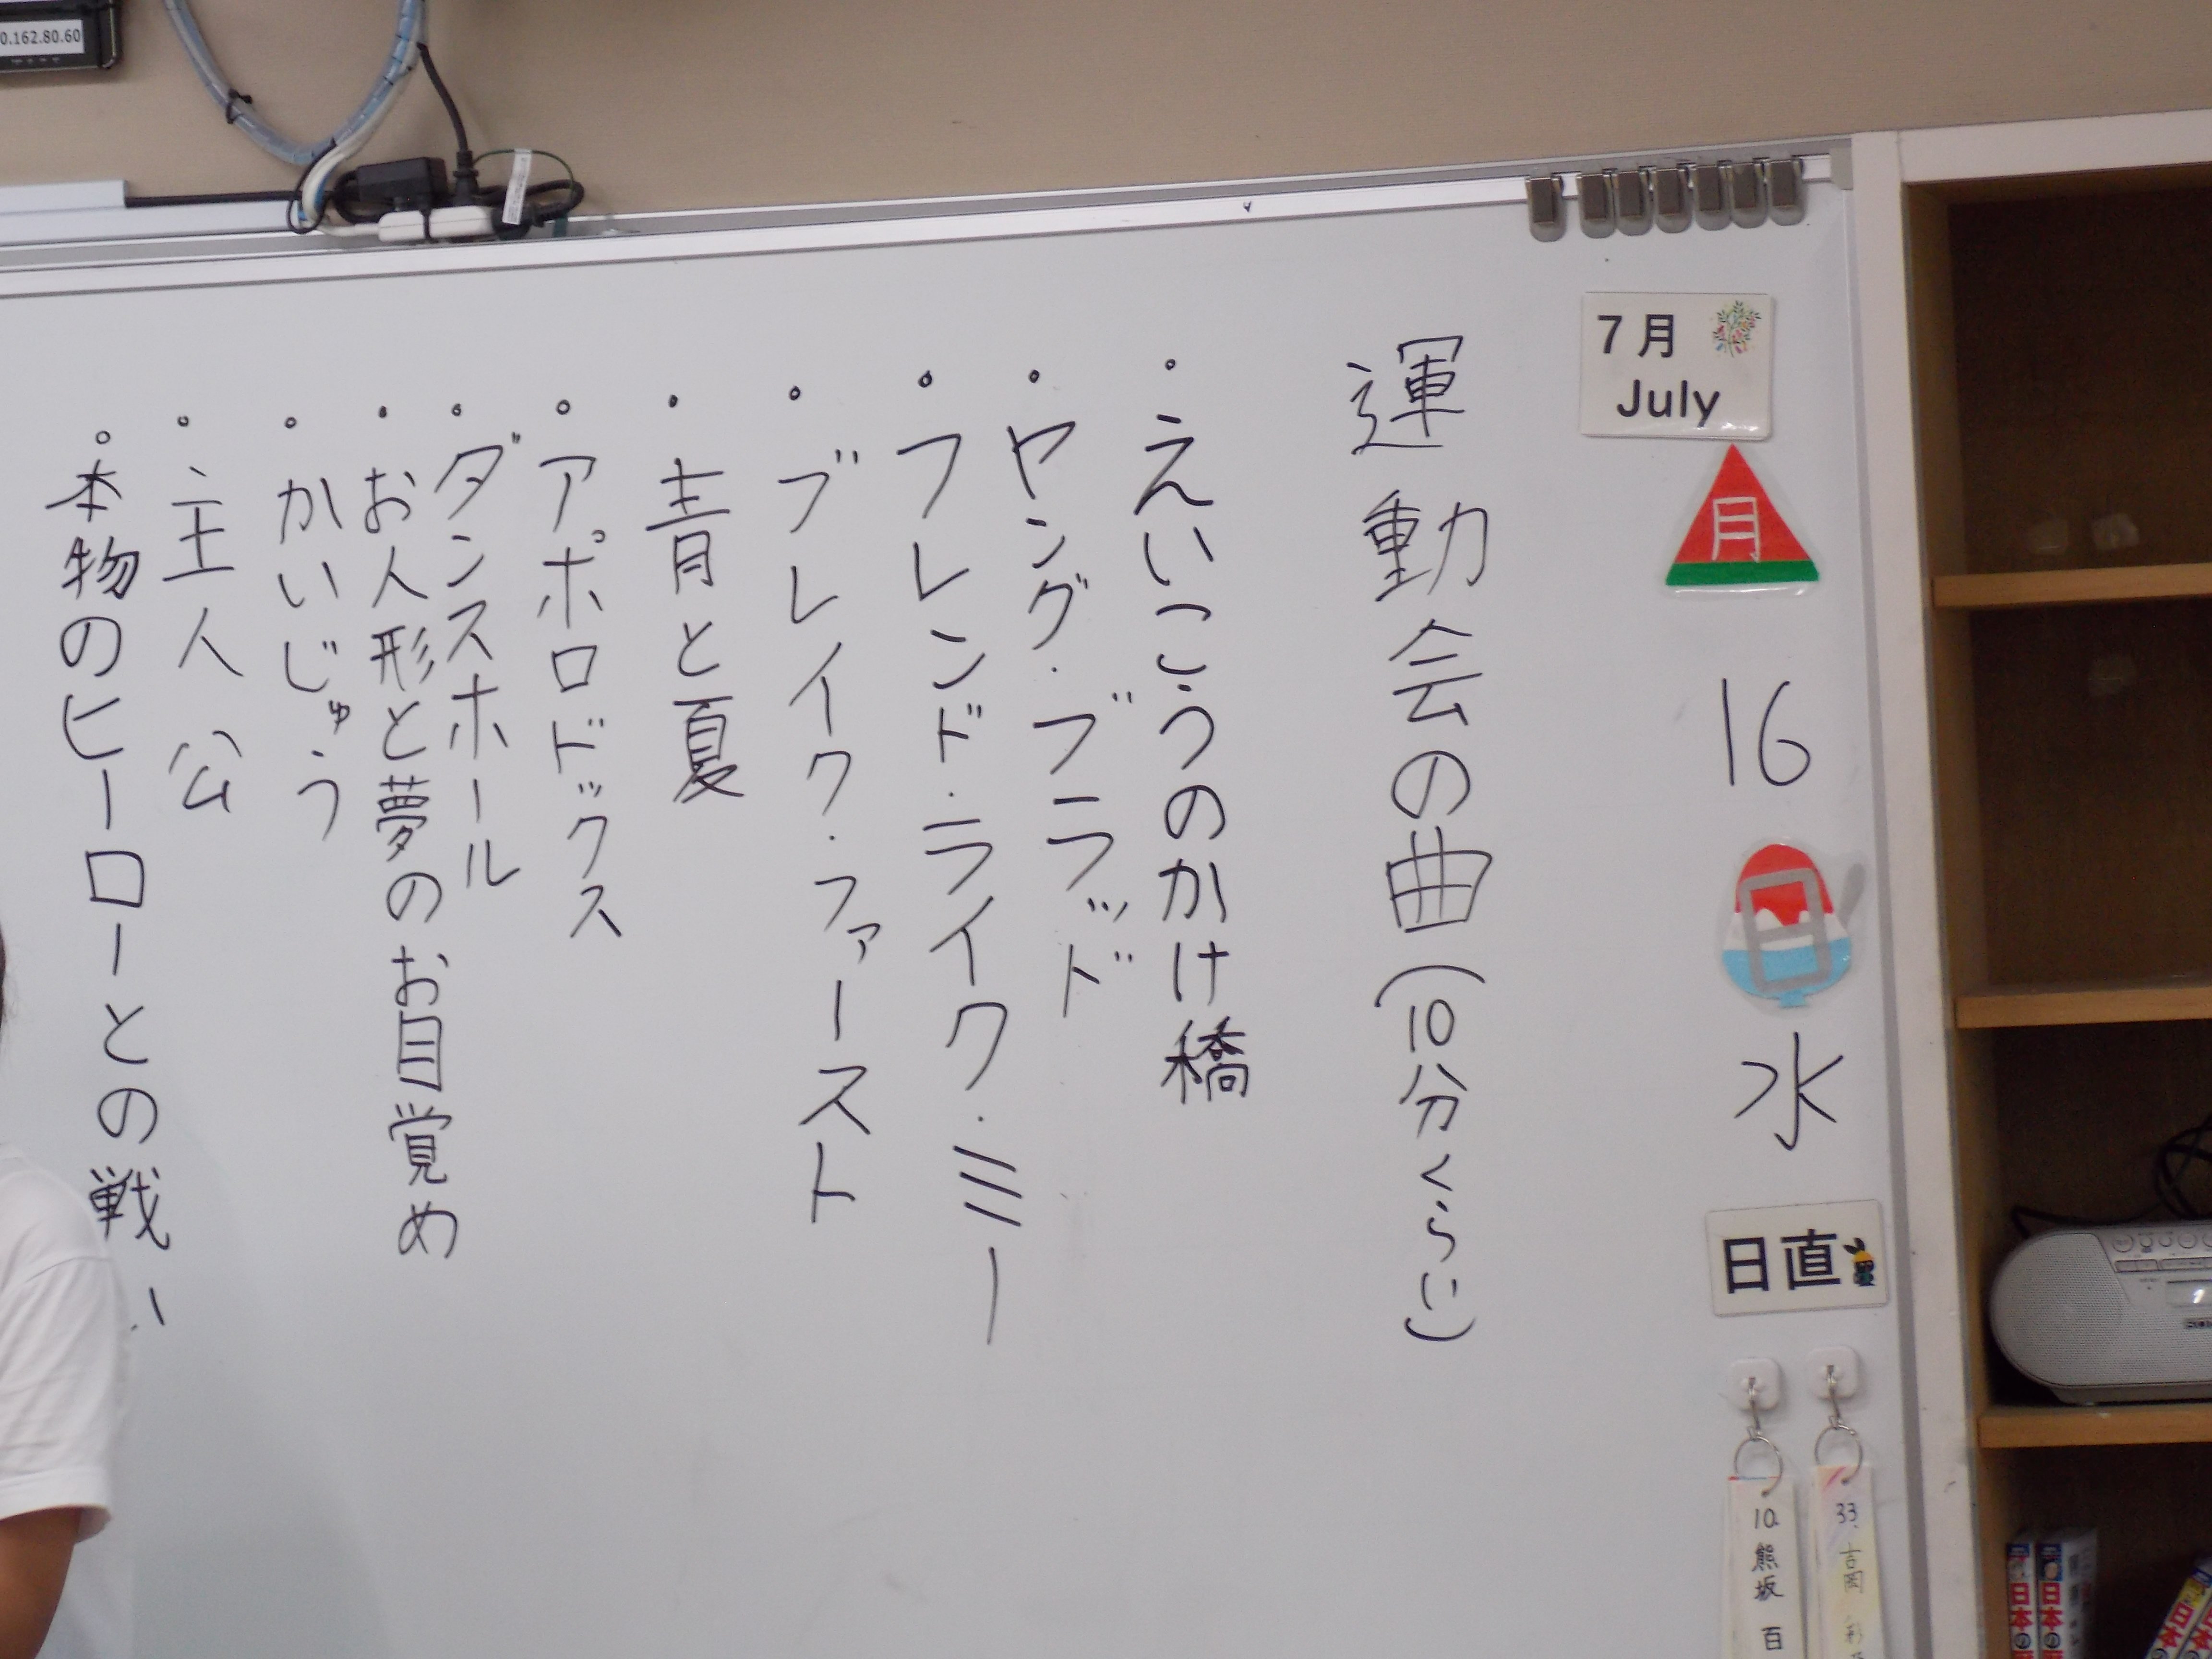 7月
July
月
16
日
水
日直
10.熊坂 百
33.吉岡
運動会の曲(10分くらい)
・えいこうのかけ橋
・ヤング・ブラッド
・フレンド・ライク・ミー
・ブレイク・ファースト
・青と夏
・アポロドックス
・ダンスホール
・お人形と夢のお目覚め
・かいじゅう
・主人公
・本物のヒーローとの戦い
0.162.80.60
日本の
日本の